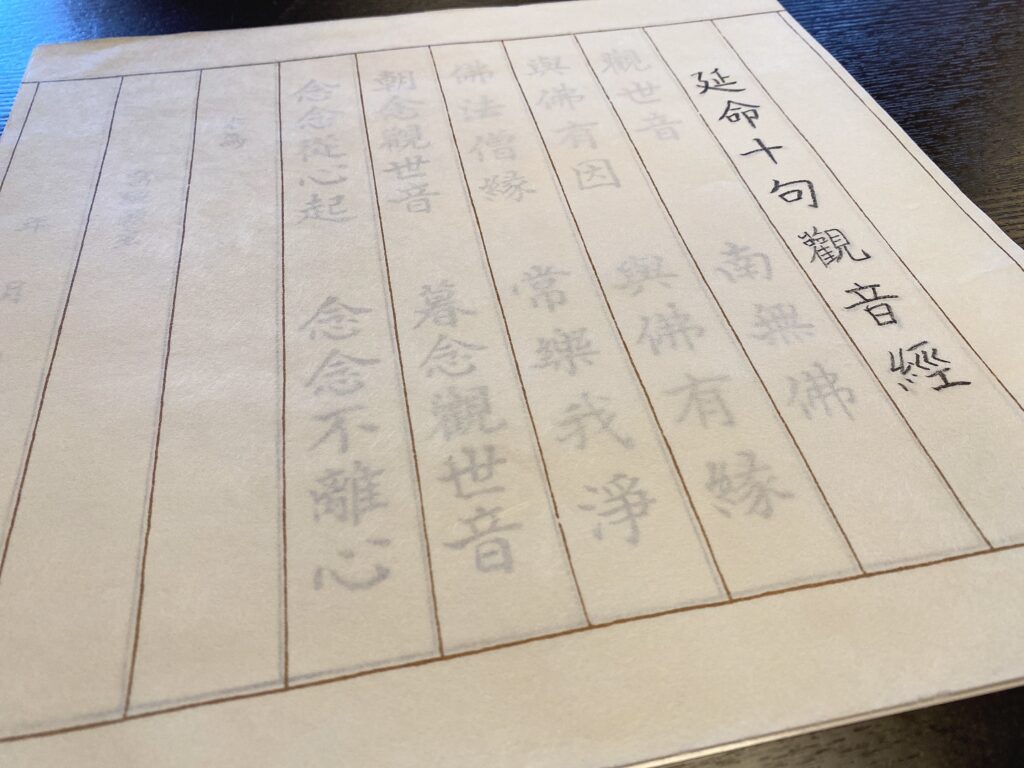 延命十句觀音經
觀世音 南無佛
與佛有因 與佛有緣
佛法僧緣 常樂我淨
朝念觀世音 暮念觀世音
念念從心起 念念不離心
為
年 月